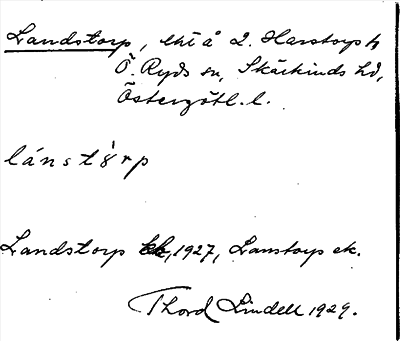 Landstorp, lht å L. Harstorp h
Ö. Ryds sn, Skärkinds hd,
Östergötl. l.
lánstȣ̀rp
Landstorp kk, 1927, Lanstorp ek.
Thord Lindell 1929.